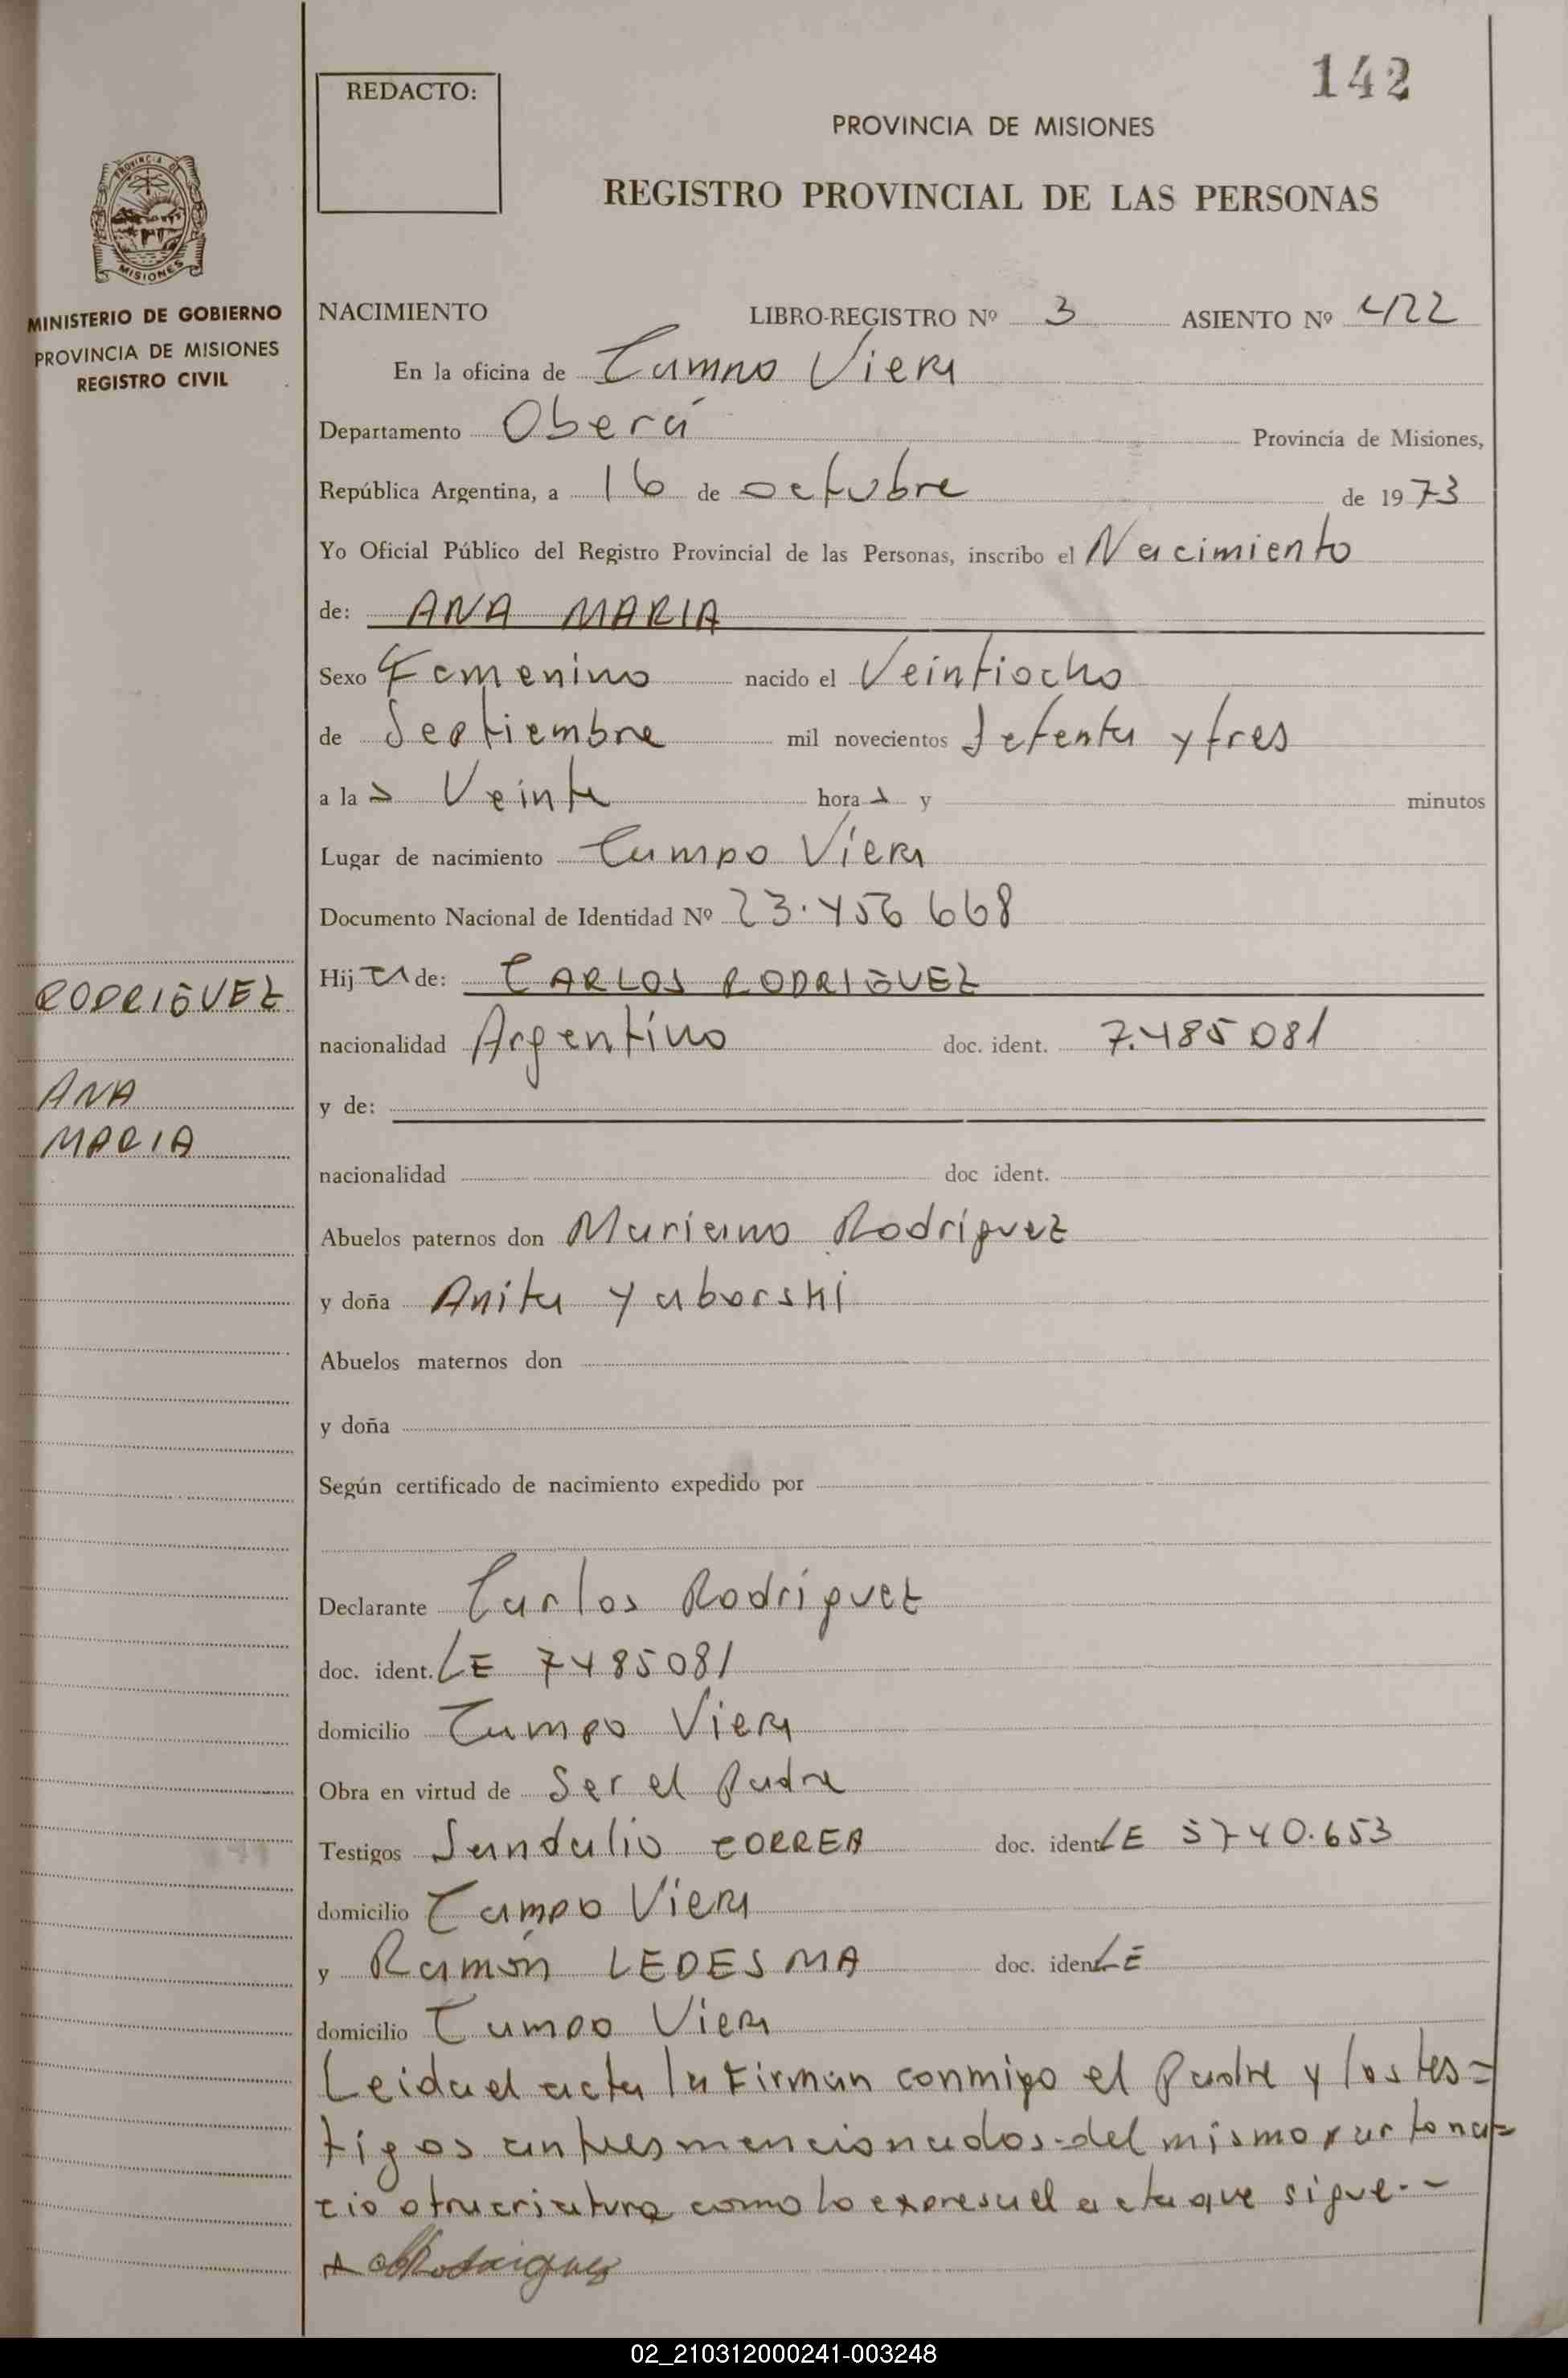 142
REDACTO:
PROVINCIA DE MISIONES
REGISTRO PROVINCIAL DE LAS PERSONAS
PROVINCIA DE
MISIONES
MINISTERIO DE GOBIERNO
PROVINCIA DE MISIONES
REGISTRO CIVIL
NACIMIENTO LIBRO-REGISTRO Nº 3 ASIENTO Nº 422
En la oficina de Campo Viera
Departamento Oberá Provincia de Misiones,
República Argentina, a 16 de octubre de 1973
Yo Oficial Público del Registro Provincial de las Personas, inscribo el Nacimiento
de: ANA MARIA
Sexo Femenino nacido el Veintiocho
de Septiembre mil novecientos Setenta y tres
a las Veinte horas y minutos
Lugar de nacimiento Campo Viera
Documento Nacional de Identidad Nº 23.456 668
Hija de: CARLOS RODRIGUEZ
RODRIGUEZ
nacionalidad Argentino doc. ident. 7.485 081
ANA
y de:
MARIA
nacionalidad doc ident.
Abuelos paternos don Mariano Rodríguez
y doña Anita Yaborski
Abuelos maternos don
y doña
Según certificado de nacimiento expedido por
Declarante Carlos Rodríguez
doc. ident. LE 7485081
domicilio Campo Viera
Obra en virtud de Ser el Padre
Testigos Sandalio CORREA doc. ident LE 5740.653
domicilio Campo Viera
y Ramón LEDESMA doc. iden LE
domicilio Campo Viera
Leida el acta la Firman conmigo el Padre y los tes=
tigos antes mencionados-del mismo parto na=
cio otra criatura como lo expresa el acta que sigue.-
Rodriguez
02_210312000241-003248